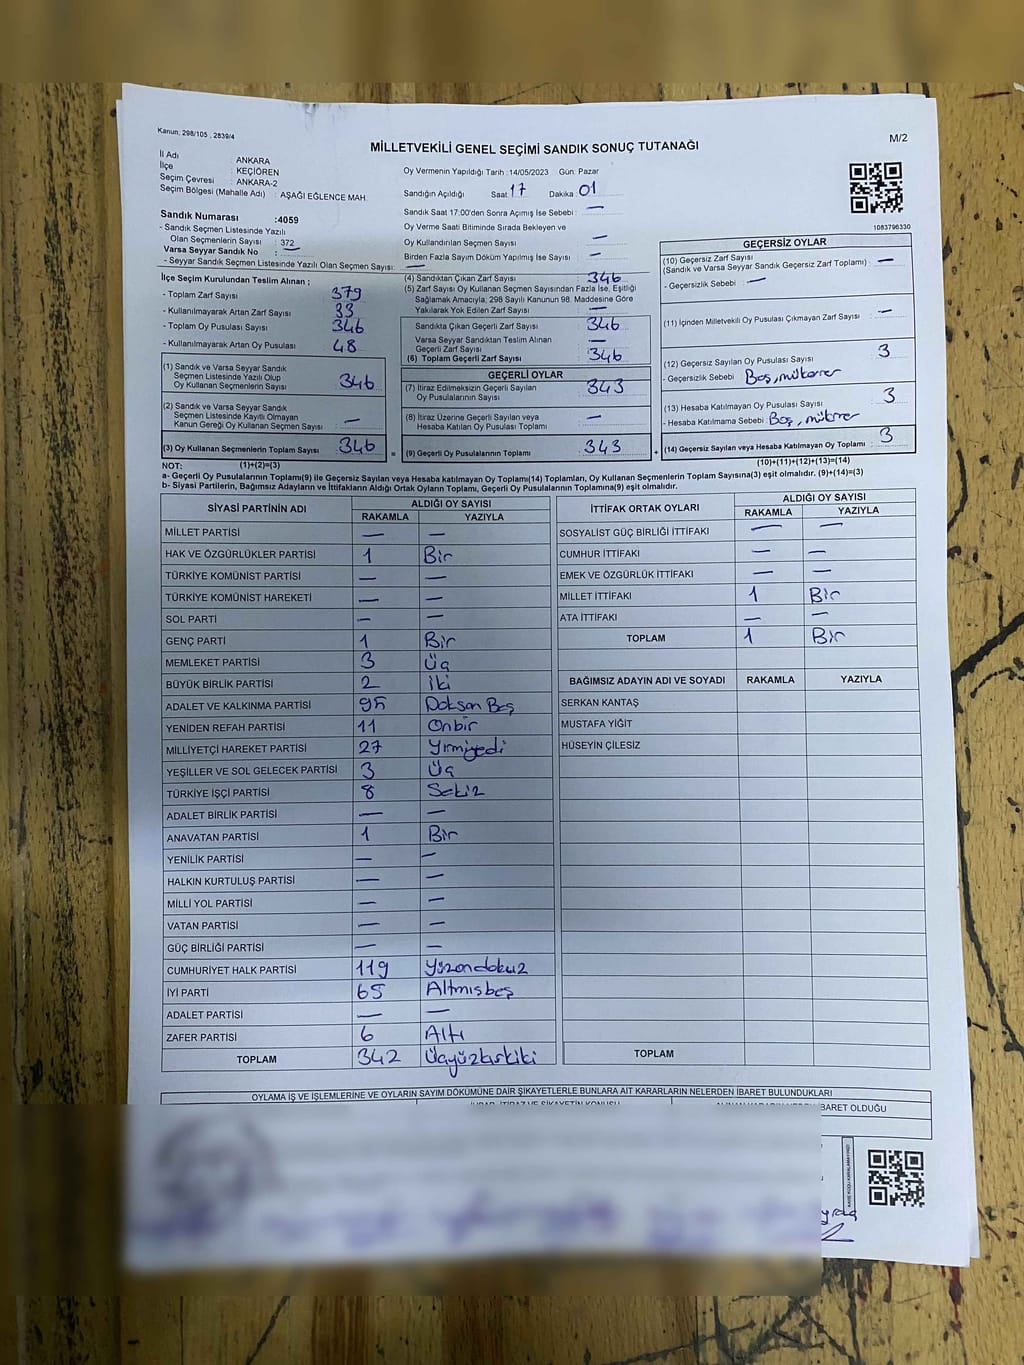 Kanun; 298/105 , 2839/4
MİLLETVEKİLİ GENEL SEÇİMİ SANDIK SONUÇ TUTANAĞI
M/2
İl Adı : ANKARA
İlçe : KEÇİÖREN
Seçim Çevresi : ANKARA-2
Seçim Bölgesi (Mahalle Adı) : AŞAĞI EĞLENCE MAH.
Oy Vermenin Yapıldığı Tarih : 14/05/2023 Gün: Pazar
Sandığın Açıldığı Saat: 17 Dakika: 01
Sandık Saat 17:00'den Sonra Açmış İse Sebebi : —
Oy Verme Saati Bitiminde Sırada Bekleyen ve
Oy Kullandırılan Seçmen Sayısı : —
Birden Fazla Sayım Döküm Yapılmış İse Sayısı : —
1083796330
Sandık Numarası :4059
- Sandık Seçmen Listesinde Yazılı
Olan Seçmenlerin Sayısı : 372
Varsa Seyyar Sandık No : —
- Seyyar Sandık Seçmen Listesinde Yazılı Olan Seçmen Sayısı: —
İlçe Seçim Kurulundan Teslim Alınan ;
- Toplam Zarf Sayısı : 379
- Kullanılmayarak Artan Zarf Sayısı : 33
- Toplam Oy Pusulası Sayısı : 346
- Kullanılmayarak Artan Oy Pusulası : 48
(1) Sandık ve Varsa Seyyar Sandık
Seçmen Listesinde Yazılı Olup
Oy Kullanan Seçmenlerin Sayısı : 346
(2) Sandık ve Varsa Seyyar Sandık
Seçmen Listesinde Kayıtlı Olmayan
Kanun Gereği Oy Kullanan Seçmen Sayısı : —
(3) Oy Kullanan Seçmenlerin Toplam Sayısı : 346
(4) Sandıktan Çıkan Zarf Sayısı : 346
(5) Zarf Sayısı Oy Kullanan Seçmen Sayısından Fazla İse, Eşitliği
Sağlamak Amacıyla; 298 Sayılı Kanunun 98. Maddesine Göre
Yakılarak Yok Edilen Zarf Sayısı : —
Sandıkta Çıkan Geçerli Zarf Sayısı : 346
Varsa Seyyar Sandıktan Teslim Alınan
Geçerli Zarf Sayısı : —
(6) Toplam Geçerli Zarf Sayısı : 346
GEÇERLİ OYLAR
(7) İtiraz Edilmeksizin Geçerli Sayılan
Oy Pusulalarının Sayısı : 343
(8) İtiraz Üzerine Geçerli Sayılan veya
Hesaba Katılan Oy Pusulası Toplamı : —
= (9) Geçerli Oy Pusulalarının Toplamı : 343
GEÇERSİZ OYLAR
(10) Geçersiz Zarf Sayısı
(Sandık ve Varsa Seyyar Sandık Geçersiz Zarf Toplamı) : —
- Geçersizlik Sebebi : —
(11) İçinden Milletvekili Oy Pusulası Çıkmayan Zarf Sayısı : —
(12) Geçersiz Sayılan Oy Pusulası Sayısı : 3
- Geçersizlik Sebebi : Boş, mükerrer
(13) Hesaba Katılmayan Oy Pusulası Sayısı : 3
- Hesaba Katılmama Sebebi : Boş,
+ (14) Geçersiz Sayılan veya Hesaba Katılmayan Oy Toplamı : 3
NOT: (1)+(2)=(3) (10)+(11)+(12)+(13)=(14)
a- Geçerli Oy Pusulalarının Toplamı(9) ile Geçersiz Sayılan veya Hesaba katılmayan Oy Toplamı(14) Toplamları, Oy Kullanan Seçmenlerin Toplam Sayısına(3) eşit olmalıdır. (9)+(14)=(3)
b- Siyasi Partilerin, Bağımsız Adayların ve İttifakların Aldığı Ortak Oyların Toplamı, Geçerli Oy Pusulalarının Toplamına(9) eşit olmalıdır.
SİYASİ PARTİNİN ADI ALDIĞI OY SAYISI
RAKAMLA YAZIYLA
MİLLET PARTİSİ — —
HAK VE ÖZGÜRLÜKLER PARTİSİ 1 Bir
TÜRKİYE KOMÜNİST PARTİSİ — —
TÜRKİYE KOMÜNİST HAREKETİ — —
SOL PARTİ — —
GENÇ PARTİ 1 Bir
MEMLEKET PARTİSİ 3 Üç
BÜYÜK BİRLİK PARTİSİ 2 iki
ADALET VE KALKINMA PARTİSİ 95 Doksan Beş
YENİDEN REFAH PARTİSİ 11 Onbir
MİLLİYETÇİ HAREKET PARTİSİ 27 Yirmiyedi
YEŞİLLER VE SOL GELECEK PARTİSİ 3 Üç
TÜRKİYE İŞÇİ PARTİSİ 8 Sekiz
ADALET BİRLİK PARTİSİ — —
ANAVATAN PARTİSİ 1 Bir
YENİLİK PARTİSİ — —
HALKIN KURTULUŞ PARTİSİ — —
MİLLİ YOL PARTİSİ — —
VATAN PARTİSİ — —
GÜÇ BİRLİĞİ PARTİSİ — —
CUMHURİYET HALK PARTİSİ 119 Yüzondokuz
İYİ PARTİ 65 Altmışbeş
ADALET PARTİSİ — —
ZAFER PARTİSİ 6 Altı
TOPLAM 342 Üçyüzkırkiki
İTTİFAK ORTAK OYLARI ALDIĞI OY SAYISI
RAKAMLA YAZIYLA
SOSYALİST GÜÇ BİRLİĞİ İTTİFAKI — —
CUMHUR İTTİFAKI — —
EMEK VE ÖZGÜRLÜK İTTİFAKI — —
MİLLET İTTİFAKI 1 Bir
ATA İTTİFAKI — —
TOPLAM 1 Bir
BAĞIMSIZ ADAYIN ADI VE SOYADI RAKAMLA YAZIYLA
SERKAN KANTAŞ
MUSTAFA YİĞİT
HÜSEYİN ÇİLESİZ
TOPLAM
OYLAMA İŞ VE İŞLEMLERİNE VE OYLARIN SAYIM DÖKÜMÜNE DAİR ŞİKAYETLERLE BUNLARA AİT KARARLARIN NELERDEN İBARET BULUNDUKLARI
İBARET OLDUĞU